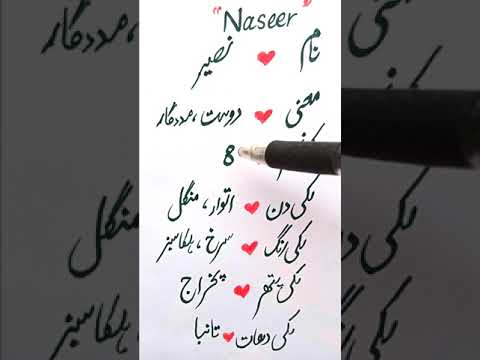 "Naseer"
نام ❤ نصیر
معنی ❤ دوست ، مددگار
8
لکی دن ❤ اتوار ، منگل
لکی رنگ ❤ سرخ ، ہلکا سبز
لکی پتھر ❤ پکھراج
لکی دھات ❤ تانبا